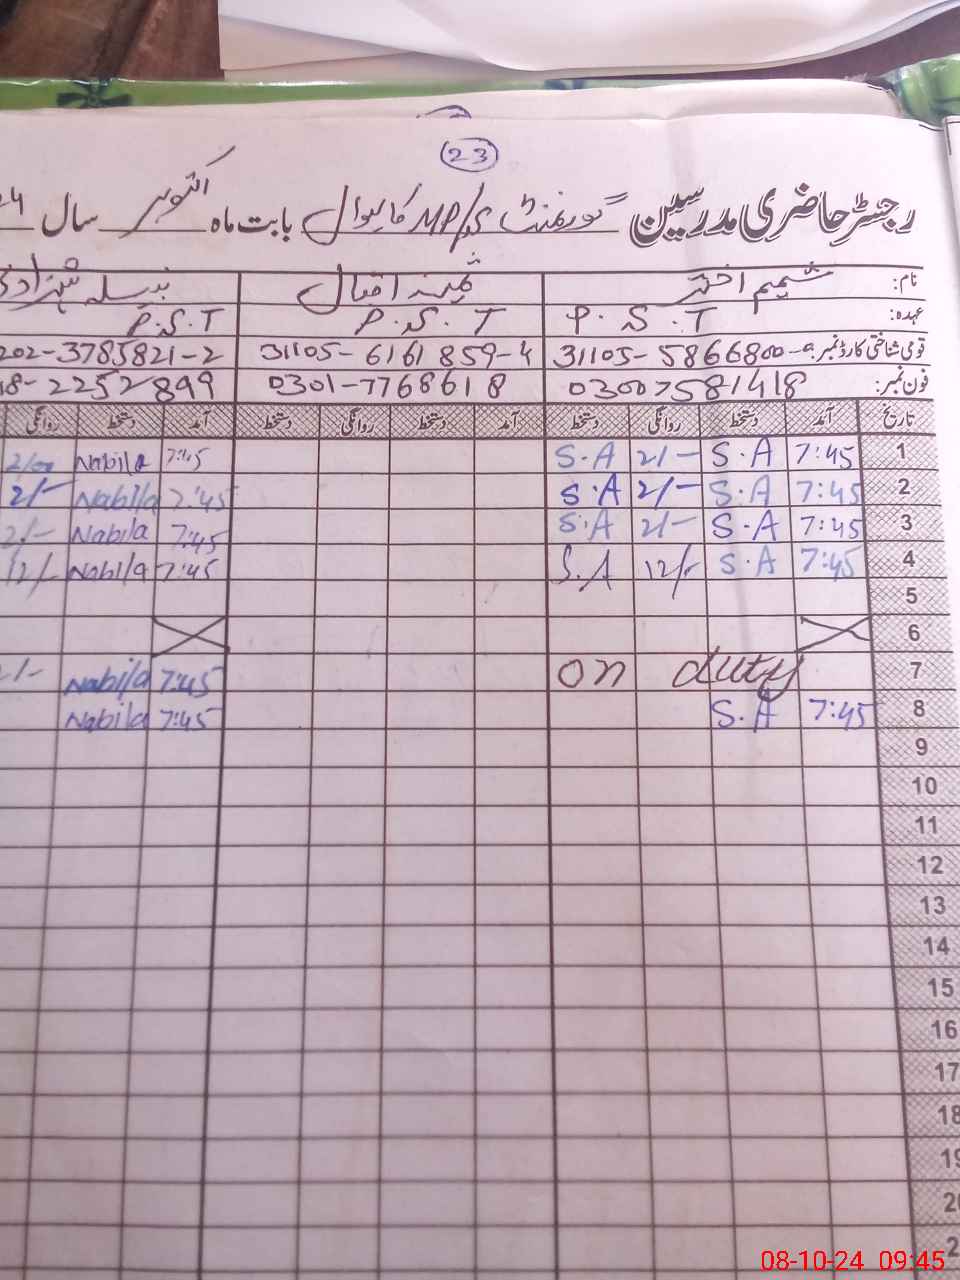 23
رجسٹر حاضری مدرسین گورنمنٹ MP/S بابت ماہ اکتوبر سال 24
نام: شمیم اختر ثمینہ اقبال نبیلہ شہزادی
عہدہ: P.S.T P.S.T P.S.T
قومی شناختی کارڈ نمبر: 31105-5866800- 31105-6161859-4 202-3785821-2
فون نمبر: 03007581418 0301-7768618 18-2252899
تاریخ آمد دستخط روانگی دستخط آمد دستخط روانگی دستخط آمد دستخط روانگی
1 7:45 S.A 2/- S.A 7:45 Nabila
2 7:45 S.A 2/- S.A 7:45 Nabila 2/-
3 7:45 S.A 2/- S.A 7:45 Nabila 2/-
4 7:45 S.A 12/- S.A 7:45 Nabila 12/-
5
6
7 on duty 7:45 Nabila
8 7:45 S.A 7:45 Nabila
9
10
11
12
13
14
15
16
17
18
19
20
2
08-10-24 09:45